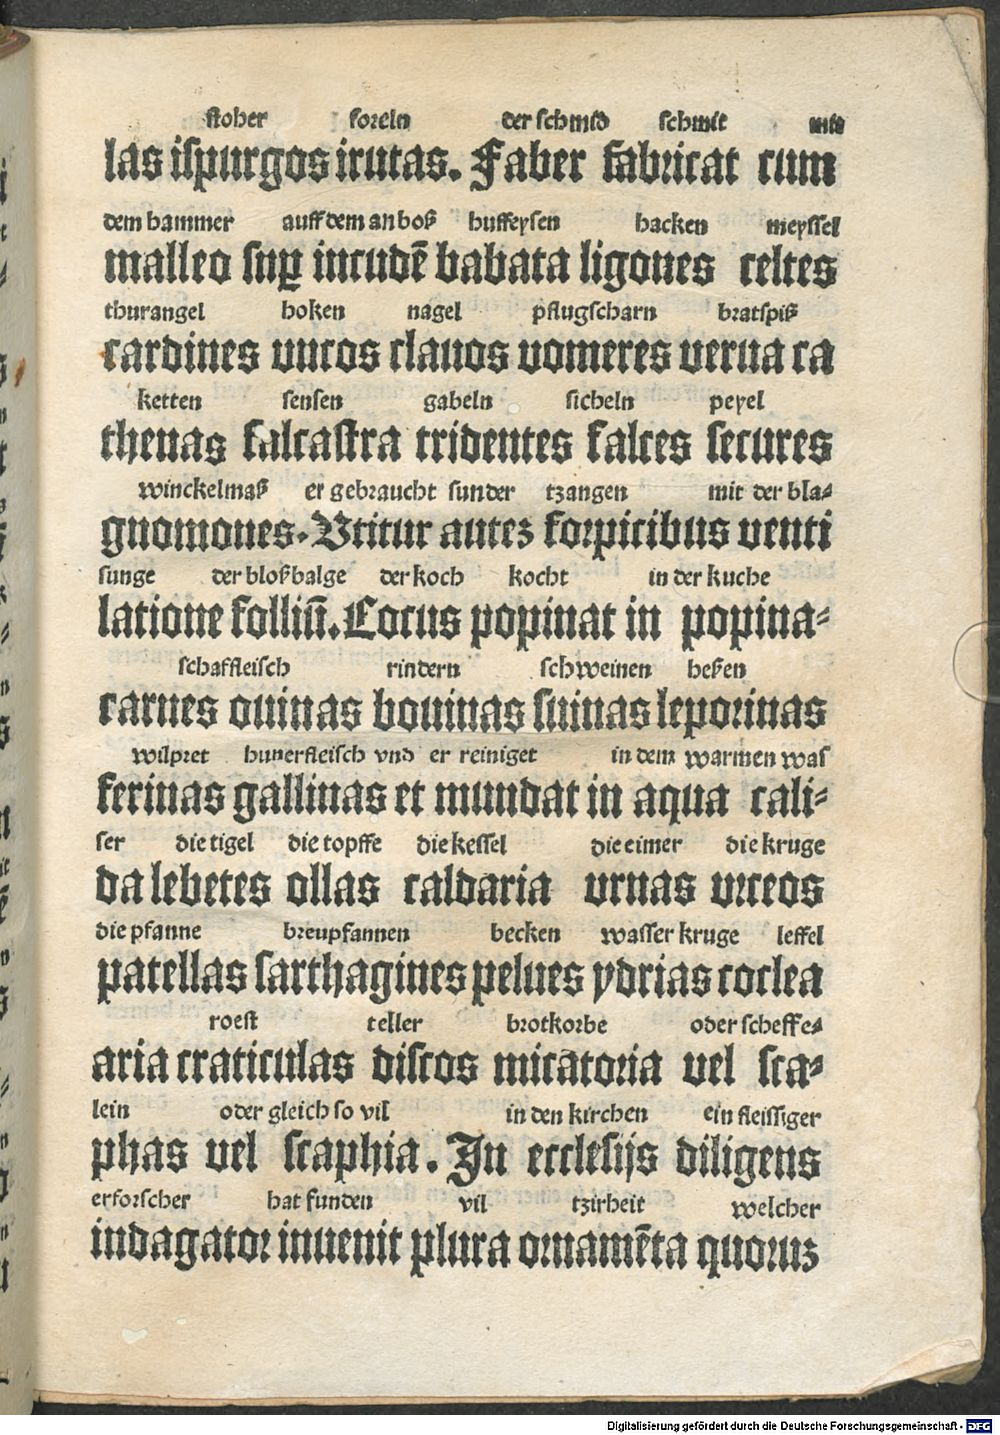 stoher foreln der schmid schmit mit
las ispurgos irutas. Faber fabricat cum
dem hammer auff dem anboß huffeysen hacken meyssel
malleo suꝑ incudē babata ligones celtes
thurangel hoken nagel pflugscharn bratspiß
cardines uncos clauos uomeres uerua ca
ketten sensen gabeln sicheln peyel
thenas falcastra tridentes falces secures
winckelmaß er gebraucht sunder tzangen mit der bla⸗
gnomones. Utitur autez forpicibus uenti
sunge der bloßbalge der koch kocht in der kuche
latione folliū. Cocus popinat in popina⸗
schaffleisch rindern schweinen heßen
carnes ouinas bouinas suinas leporinas
wilpret hunerfleisch vnd er reiniget in dem warmen was
ferinas gallinas et mundat in aqua cali⸗
ser die tigel die topffe die kessel die eimer die kruge
da lebetes ollas caldaria urnas urceos
die pfanne breupfannen becken wasser kruge leffel
patellas sarthagines pelues ydrias coclea
roest teller brotkorbe oder scheffe⸗
aria craticulas discos micatoria uel sca⸗
lein oder gleich so vil in den kirchen ein fleissiger
phas uel scaphia. In ecclesijs diligens
erforscher hat funden vil tzirheit welcher
indagator inuenit plura ornamēta quoruz
Digitalisierung gefördert durch die Deutsche Forschungsgemeinschaft - DFG